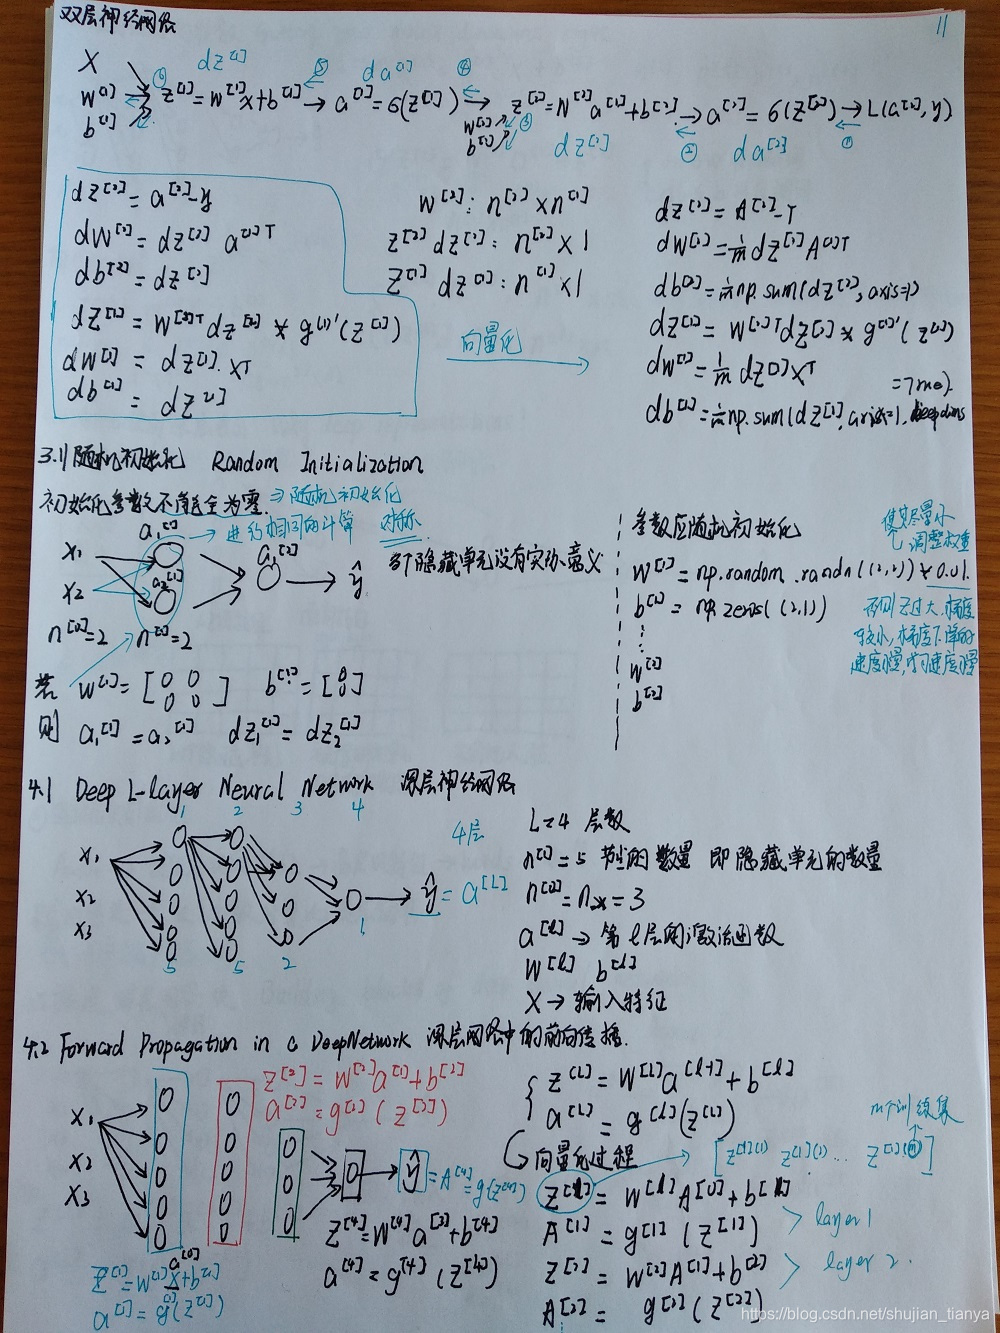 双层神经网络
11
X
w[1]
b[1]
z[1]=w[1]x+b[1] → a[1]=6(z[1]) → z[2]=W[2]a[1]+b[2] → a[2]=6(z[2]) → L(a[2],y)
dz[1]
da[1]
w[2]
b[2]
dz[2]
da[2]
dz[2]=a[2]-y
dW[2]=dz[2] a[1]T
db[2]=dz[2]
dz[1]=W[2]Tdz[2]*g[1]'(z[1])
dw[1]=dz[1].xT
db[1]=dz[1]
w[2]:n[2]×n[1]
z[2] dz[2]:n[2]×1
z[1] dz[1]:n[1]×1
向量化
dz[2]=A[2]-Y
dW[2]=1/m dz[2]A[1]T
db[2]=1/m np.sum(dz[2],axis=1)
dz[1]=W[2]Tdz[2]*g[1]'(z[1])
dw[1]=1/m dz[1]XT
db[1]=1/m np.sum(dz[1],axis=1,keepdims
=True).
3.11随机初始化 Random Initialization
初始化参数不能全为零. ⇒随机初始化
a1[1] → 进行相同的计算 对称
x1
x2
a2[1]
a1[2]
ŷ
则隐藏单元没有实际意义
n[0]=2 n[1]=2
若 w[1]=[0 0 0 0] b[1]=[0 0]
则 a1[1]=a2[1] dz1[1]=dz2[1]
参数应随机初始化
使其尽量小
调整权重
w[1]=np.random.randn((2,2))*0.01.
b[1]=np.zeros((2,1))
w[2]
b[2]
否则Z过大,梯度
较小,梯度下降的
速度慢,学习速度慢
4.1 Deep L-layer Neural Network 深层神经网络
1 2 3 4
4层
x1
x2
x3
ŷ=a[L]
5 5 2 1
L=4 层数
n[1]=5 节点的数量 即隐藏单元的数量
n[0]=nx=3
a[l]→第l层的激活函数
W[l] b[l]
X→输入特征
4.2 Forward Propagation in a Deep Network 深层网络中的前向传播.
z[2]=w[2]a[1]+b[2]
a[2]=g[2](z[2])
x1
x2
x3
ŷ=A[4]=g(z[4])
a[0]
Z[1]=w[1]x+b[1]
a[1]=g(z[1])
Z[4]=W[4]a[3]+b[4]
a[4]=g[4](z[4])
z[l]=W[l]a[l-1]+b[l]
a[l]=g[l](z[l])
向量化过程
m个训练集
[z[1](1) z[1](2) ... z[1](m)]
Z[1]=W[1]A[0]+b[1]
A[1]=g[1](Z[1])
layer 1
Z[2]=W[2]A[1]+b[2]
layer 2.
A[2]=g[2](Z[2])
https://blog.csdn.net/shujian_tianya